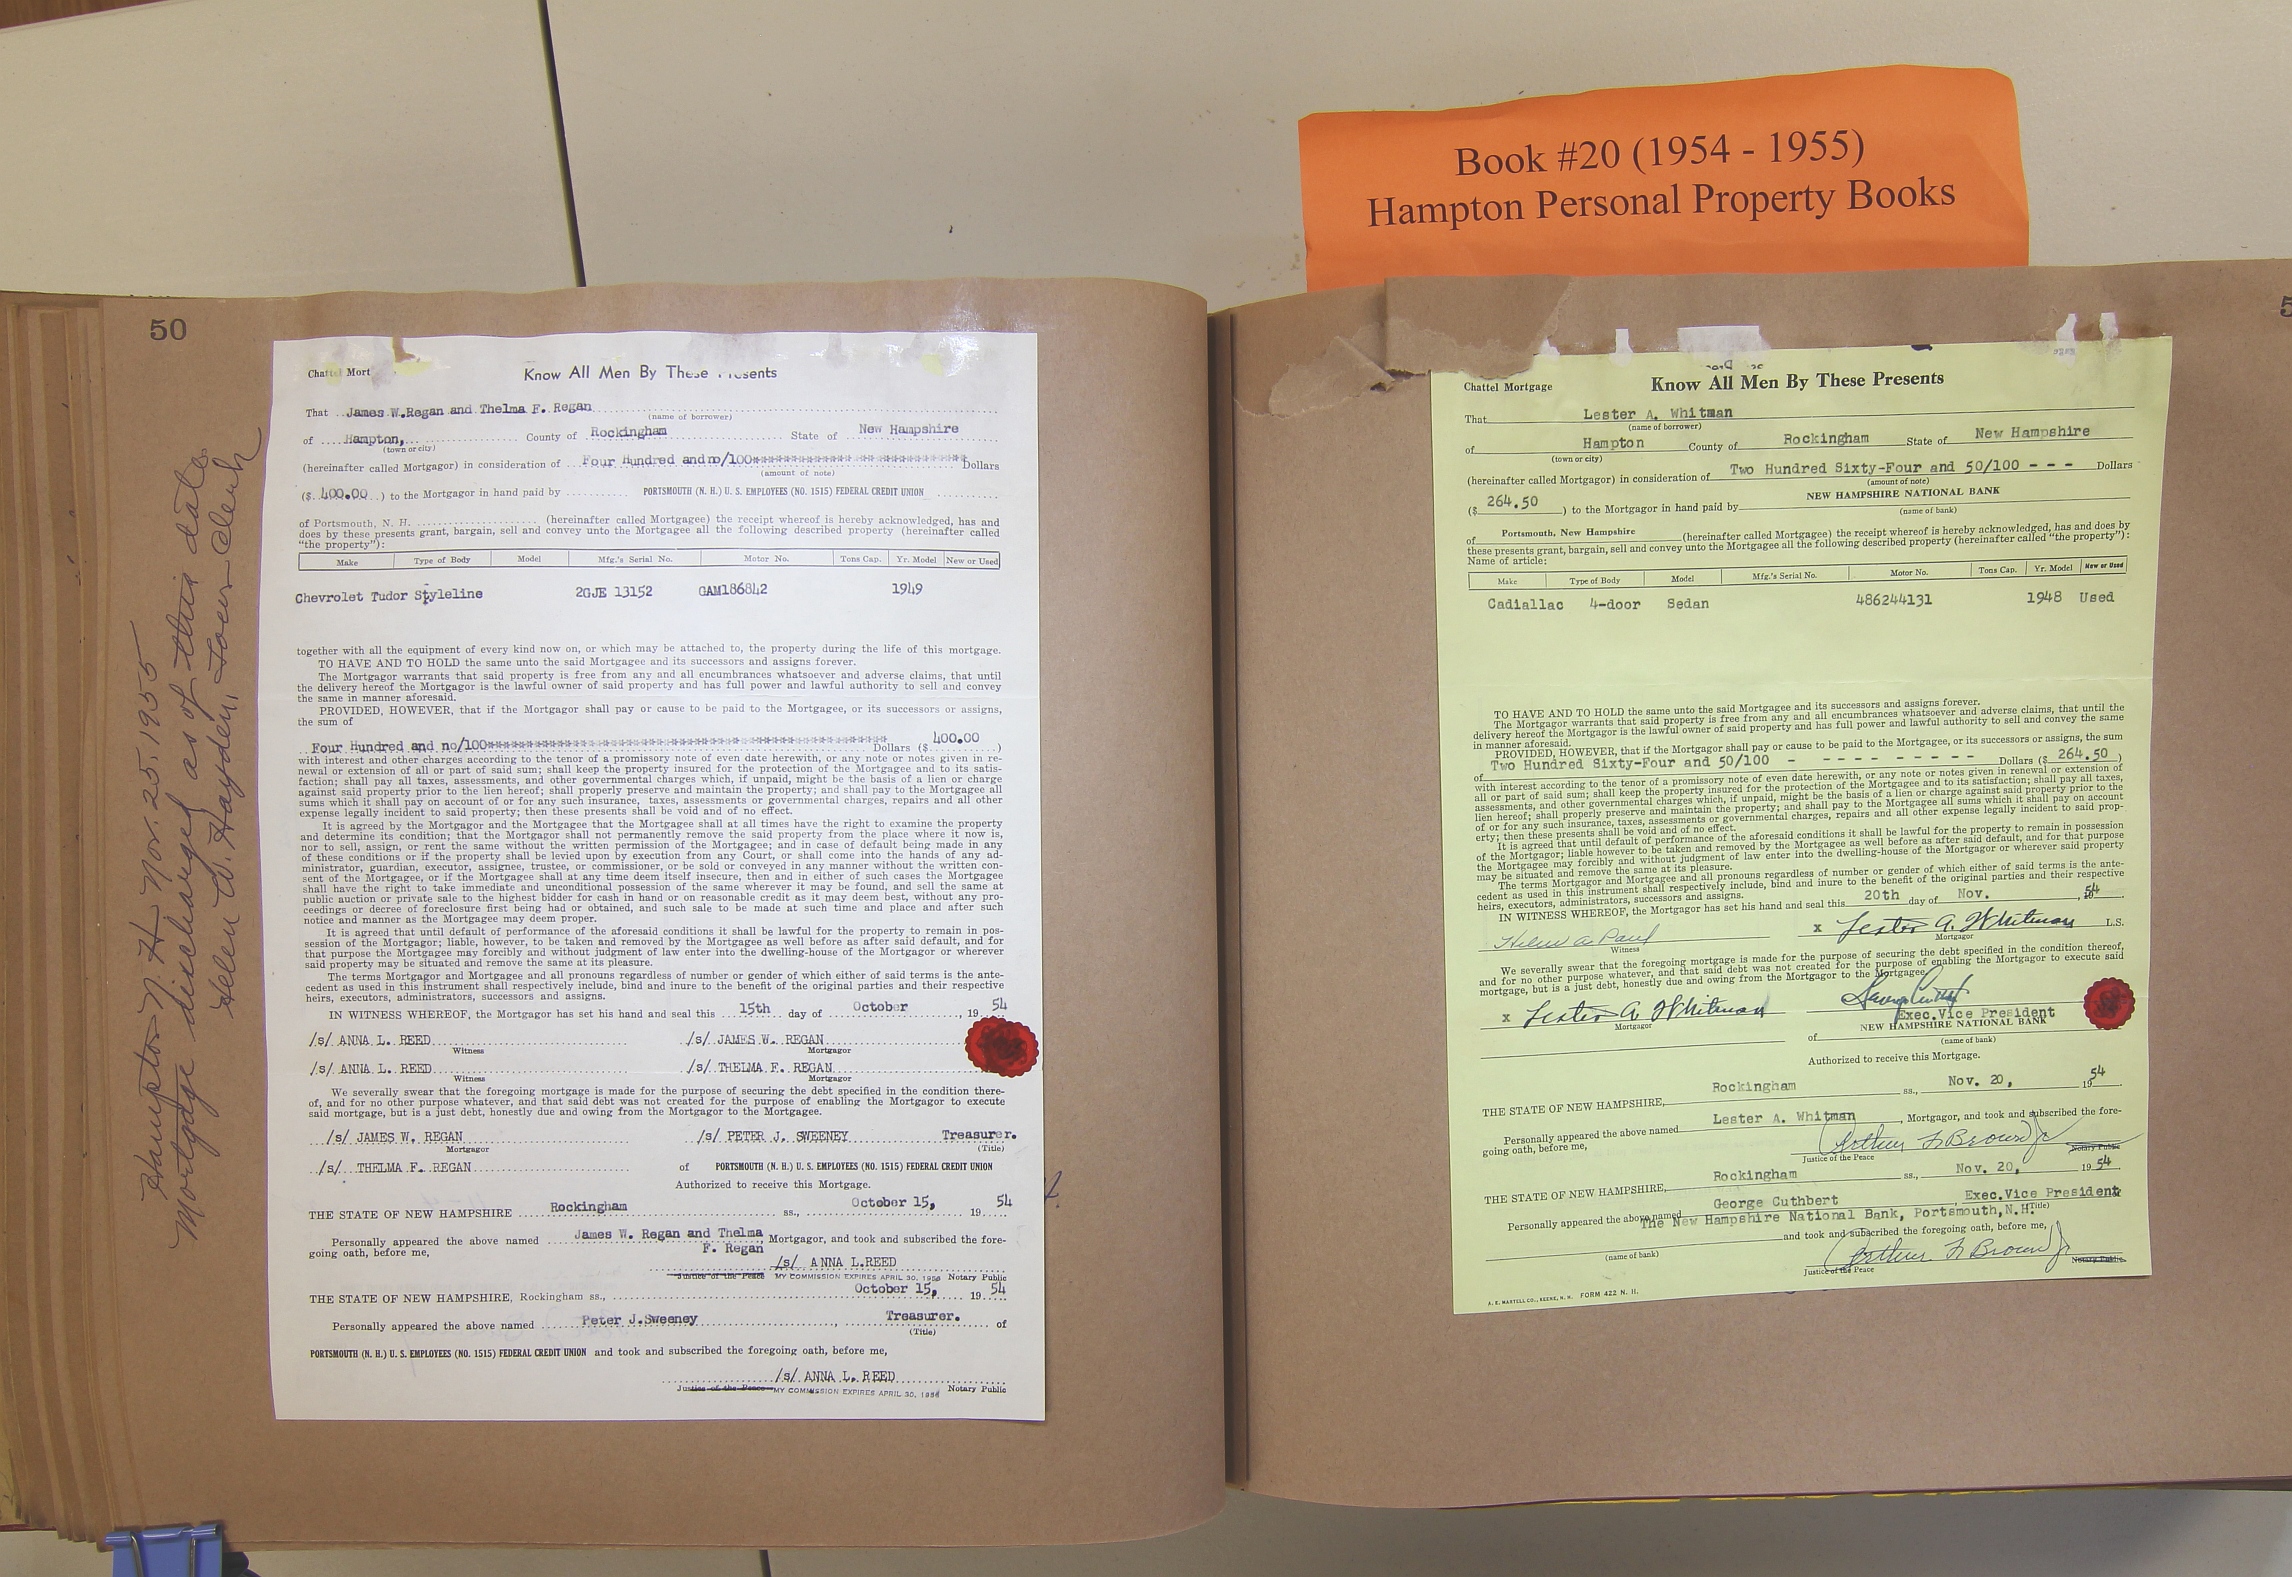 Book #20 (1954 - 1955)
Hampton Personal Property Books
50
Hampton N. H. Nov. 25, 1955
Mortgage discharged as of this date
Helen W. Hayden, Town Clerk
Chattel Mort
Know All Men By These Presents
That James W.Regan and Thelma F. Regan
(name of borrower)
of Hampton, County of Rockingham State of New Hampshire
(town or city)
(hereinafter called Mortgagor) in consideration of Four Hundred and no/100 Dollars
(amount of note)
($ 400.00 ) to the Mortgagor in hand paid by PORTSMOUTH (N. H.) U. S. EMPLOYEES (NO. 1515) FEDERAL CREDIT UNION
of Portsmouth, N. H. (hereinafter called Mortgagee) the receipt whereof is hereby acknowledged, has and
does by these presents grant, bargain, sell and convey unto the Mortgagee all the following described property (hereinafter called
"the property"):
Make Type of Body Model Mfg.'s Serial No. Motor No. Tons Cap. Yr. Model New or Used
Chevrolet Tudor Styleline 2GJE 13152 GAM186842 1949
together with all the equipment of every kind now on, or which may be attached to, the property during the life of this mortgage.
TO HAVE AND TO HOLD the same unto the said Mortgagee and its successors and assigns forever.
The Mortgagor warrants that said property is free from any and all encumbrances whatsoever and adverse claims, that until
the delivery hereof the Mortgagor is the lawful owner of said property and has full power and lawful authority to sell and convey
the same in manner aforesaid.
PROVIDED, HOWEVER, that if the Mortgagor shall pay or cause to be paid to the Mortgagee, or its successors or assigns,
the sum of
Four Hundred and no/100 Dollars ($ 400.00 )
with interest and other charges according to the tenor of a promissory note of even date herewith, or any note or notes given in re-
newal or extension of all or part of said sum; shall keep the property insured for the protection of the Mortgagee and to its satis-
faction; shall pay all taxes, assessments, and other governmental charges which, if unpaid, might be the basis of a lien or charge
against said property prior to the lien hereof; shall properly preserve and maintain the property; and shall pay to the Mortgagee all
sums which it shall pay on account of or for any such insurance, taxes, assessments or governmental charges, repairs and all other
expense legally incident to said property; then these presents shall be void and of no effect.
It is agreed by the Mortgagor and the Mortgagee that the Mortgagee shall at all times have the right to examine the property
and determine its condition; that the Mortgagor shall not permanently remove the said property from the place where it now is,
nor to sell, assign, or rent the same without the written permission of the Mortgagee; and in case of default being made in any
of these conditions or if the property shall be levied upon by execution from any Court, or shall come into the hands of any ad-
ministrator, guardian, executor, assignee, trustee, or commissioner, or be sold or conveyed in any manner without the written con-
sent of the Mortgagee, or if the Mortgagee shall at any time deem itself insecure, then and in either of such cases the Mortgagee
shall have the right to take immediate and unconditional possession of the same wherever it may be found, and sell the same at
public auction or private sale to the highest bidder for cash in hand or on reasonable credit as it may deem best, without any pro-
ceedings or decree of foreclosure first being had or obtained, and such sale to be made at such time and place and after such
notice and manner as the Mortgagee may deem proper.
It is agreed that until default of performance of the aforesaid conditions it shall be lawful for the property to remain in pos-
session of the Mortgagor; liable, however, to be taken and removed by the Mortgagee as well before as after said default, and for
that purpose the Mortgagee may forcibly and without judgment of law enter into the dwelling-house of the Mortgagor or wherever
said property may be situated and remove the same at its pleasure.
The terms Mortgagor and Mortgagee and all pronouns regardless of number or gender of which either of said terms is the ante-
cedent as used in this instrument shall respectively include, bind and inure to the benefit of the original parties and their respective
heirs, executors, administrators, successors and assigns.
IN WITNESS WHEREOF, the Mortgagor has set his hand and seal this 15th day of October, 19 54
/s/ ANNA L. REED /s/ JAMES W. REGAN
Witness Mortgagor
/s/ ANNA L. REED /s/ THELMA F. REGAN
Witness Mortgagor
We severally swear that the foregoing mortgage is made for the purpose of securing the debt specified in the condition there-
of, and for no other purpose whatever, and that said debt was not created for the purpose of enabling the Mortgagor to execute
said mortgage, but is a just debt, honestly due and owing from the Mortgagor to the Mortgagee.
/s/ JAMES W. REGAN /s/ PETER J. SWEENEY Treasurer.
Mortgagor (Title)
/s/ THELMA F. REGAN of PORTSMOUTH (N. H.) U. S. EMPLOYEES (NO. 1515) FEDERAL CREDIT UNION
Authorized to receive this Mortgage.
THE STATE OF NEW HAMPSHIRE Rockingham ss., October 15, 19 54
Personally appeared the above named James W. Regan and Thelma F. Regan, Mortgagor, and took and subscribed the fore-
going oath, before me,
/s/ ANNA L.REED
Justice of the Peace MY COMMISSION EXPIRES APRIL 30, 1958 Notary Public
THE STATE OF NEW HAMPSHIRE, Rockingham ss., October 15, 19 54
Personally appeared the above named Peter J.Sweeney, Treasurer. of
(Title)
PORTSMOUTH (N. H.) U. S. EMPLOYEES (NO. 1515) FEDERAL CREDIT UNION and took and subscribed the foregoing oath, before me,
/s/ ANNA L. REED
Justice of the Peace MY COMMISSION EXPIRES APRIL 30, 1958 Notary Public
Chattel Mortgage
Know All Men By These Presents
That Lester A. Whitman
(name of borrower)
of Hampton County of Rockingham State of New Hampshire
(town or city)
(hereinafter called Mortgagor) in consideration of Two Hundred Sixty-Four and 50/100 - - - Dollars
(amount of note)
($ 264.50 ) to the Mortgagor in hand paid by NEW HAMPSHIRE NATIONAL BANK
(name of bank)
of Portsmouth, New Hampshire (hereinafter called Mortgagee) the receipt whereof is hereby acknowledged, has and does by
these presents grant, bargain, sell and convey unto the Mortgagee all the following described property (hereinafter called "the property"):
Name of article:
Make Type of Body Model Mfg.'s Serial No. Motor No. Tons Cap. Yr. Model New or Used
Cadiallac 4-door Sedan 486244131 1948 Used
TO HAVE AND TO HOLD the same unto the said Mortgagee and its successors and assigns forever.
The Mortgagor warrants that said property is free from any and all encumbrances whatsoever and adverse claims, that until the
delivery hereof the Mortgagor is the lawful owner of said property and has full power and lawful authority to sell and convey the same
in manner aforesaid.
PROVIDED, HOWEVER, that if the Mortgagor shall pay or cause to be paid to the Mortgagee, or its successors or assigns, the sum
of Two Hundred Sixty-Four and 50/100 - - - - - - - - - - Dollars ($ 264.50 )
with interest according to the tenor of a promissory note of even date herewith, or any note or notes given in renewal or extension of
all or part of said sum; shall keep the property insured for the protection of the Mortgagee and to its satisfaction; shall pay all taxes,
assessments, and other governmental charges which, if unpaid, might be the basis of a lien or charge against said property prior to the
lien hereof; shall properly preserve and maintain the property; and shall pay to the Mortgagee all sums which it shall pay on account
of or for any such insurance, taxes, assessments or governmental charges, repairs and all other expense legally incident to said prop-
erty; then these presents shall be void and of no effect.
It is agreed that until default of performance of the aforesaid conditions it shall be lawful for the property to remain in possession
of the Mortgagor; liable however to be taken and removed by the Mortgagee as well before as after said default, and for that purpose
the Mortgagee may forcibly and without judgment of law enter into the dwelling-house of the Mortgagor or wherever said property
may be situated and remove the same at its pleasure.
The terms Mortgagor and Mortgagee and all pronouns regardless of number or gender of which either of said terms is the ante-
cedent as used in this instrument shall respectively include, bind and inure to the benefit of the original parties and their respective
heirs, executors, administrators, successors and assigns.
IN WITNESS WHEREOF, the Mortgagor has set his hand and seal this 20th day of Nov., 54
Helen A. Paul x Lester A. Whitman L.S.
Witness Mortgagor
We severally swear that the foregoing mortgage is made for the purpose of securing the debt specified in the condition thereof,
and for no other purpose whatever, and that said debt was not created for the purpose of enabling the Mortgagor to execute said
mortgage, but is a just debt, honestly due and owing from the Mortgagor to the Mortgagee.
x Lester A. Whitman George Cuthbert
Mortgagor Exec.Vice President
of NEW HAMPSHIRE NATIONAL BANK
(name of bank)
Authorized to receive this Mortgage.
THE STATE OF NEW HAMPSHIRE, Rockingham ss., Nov. 20, 19 54
Personally appeared the above named Lester A. Whitman, Mortgagor, and took and subscribed the fore-
going oath, before me, Arthur F Brown Jr
Justice of the Peace Notary Public
THE STATE OF NEW HAMPSHIRE, Rockingham ss., Nov. 20, 19 54
Personally appeared the above named George Cuthbert, Exec.Vice President
(Title)
The New Hampshire National Bank, Portsmouth,N.H.
and took and subscribed the foregoing oath, before me,
(name of bank)
Arthur F Brown Jr
Justice of the Peace Notary Public
A. E. MARTELL CO., KEENE, N. H. FORM 422 N. H.